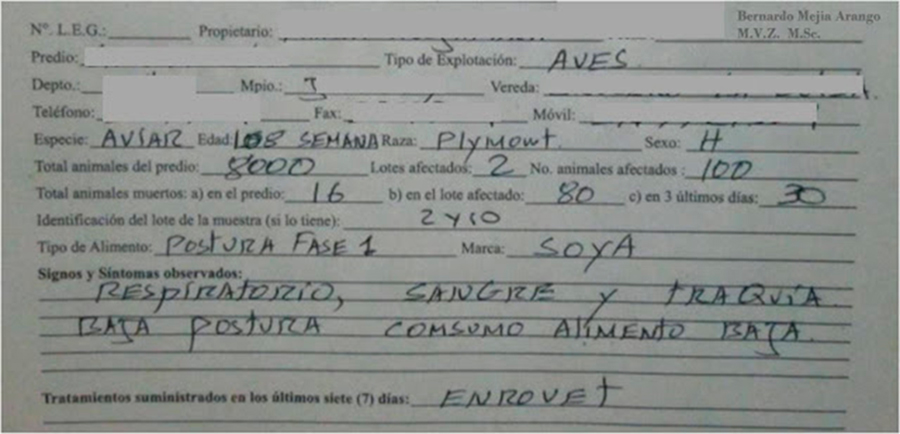 Bernardo Mejia Arango
Nº. L.E.G.: Propietario: M.V.Z. M.Sc.
Predio: Tipo de Explotación: AVES
Depto.: Mpio.: J Vereda:
Teléfono: Fax: Móvil:
Especie: AVIAR Edad 108 SEMANA Raza: Plymont. Sexo: H
Total animales del predio: 8000 Lotes afectados: 2 No. animales afectados : 100
Total animales muertos: a) en el predio: 16 b) en el lote afectado: 80 c) en 3 últimos días: 30
Identificación del lote de la muestra (si lo tiene): 2 y 10
Tipo de Alimento: POSTURA FASE 1 Marca: SOYA
Signos y Síntomas observados:
RESPIRATORIO, SANGRE y TRAQUIA
BAJA POSTURA COMSUMO ALIMENTO BAJA.
Tratamientos suministrados en los últimos siete (7) días: ENROVET